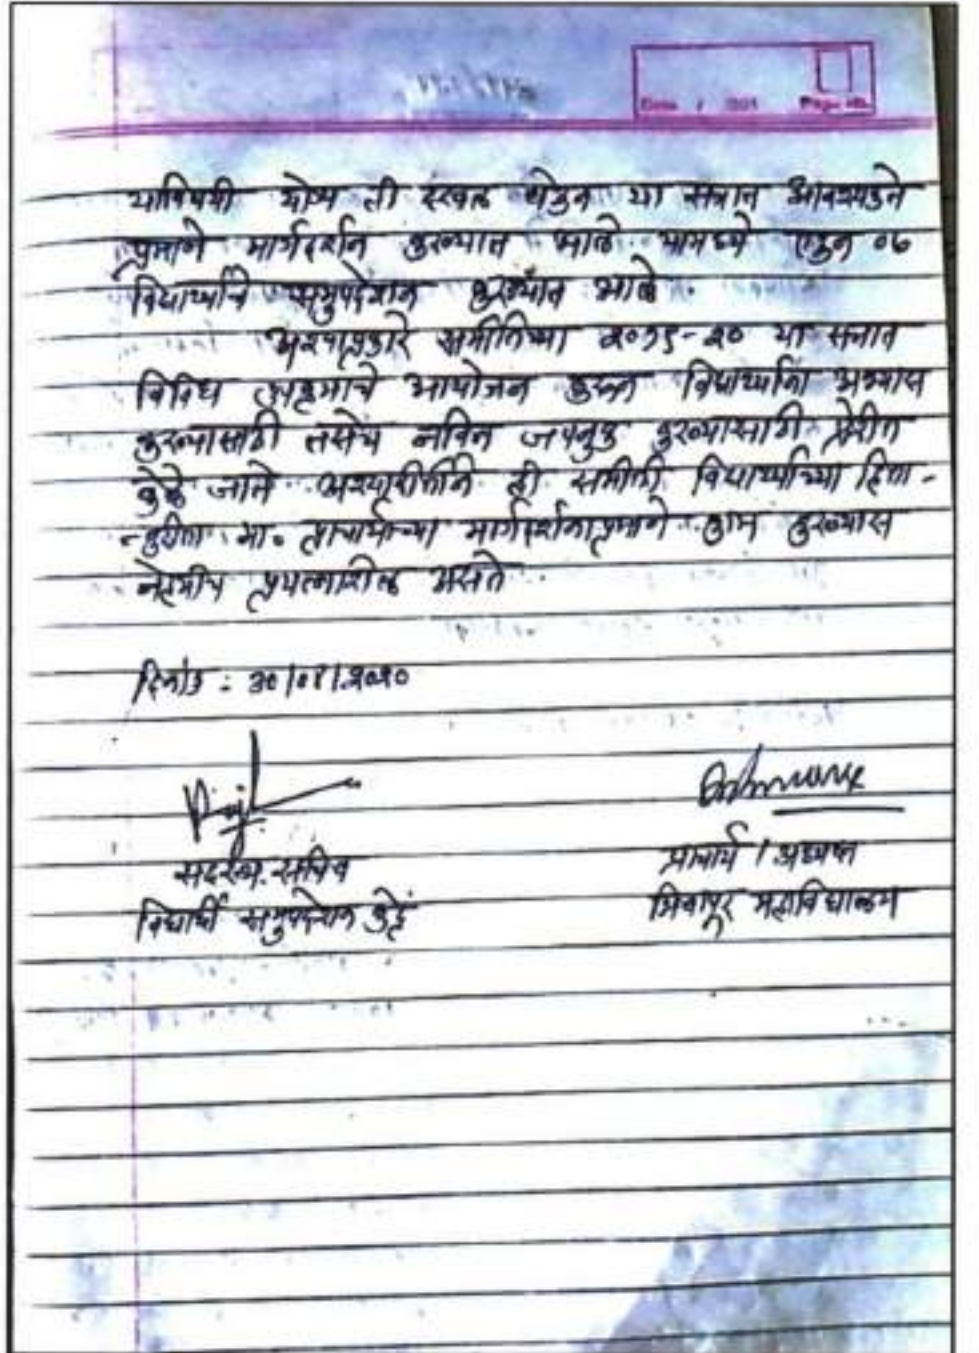 Date / 201 Page No.
याविषयी योग्य ती दखल घेऊन या सत्रात आवश्यकते
प्रमाणे मार्गदर्शन करण्यात आले. यामध्ये एकुन ०७
विद्यार्थ्यांचे समुपदेशन करण्यात आले.
अश्याप्रकारे समितीच्या २०१९-२० या सत्रात
विविध उपक्रमाचे आयोजन करून विद्यार्थ्यांना अभ्यास
करण्यासाठी तसेच नविन करण्यासाठी प्रेरीत
केले जाते. अश्यारीतीने ही समिती विद्यार्थ्यांच्या हिता-
-करीता मा. प्राचार्यांच्या मार्गदर्शनाप्रमाणे काम करण्यास
नेहमीच प्रयत्नाशिल असते.
दिनांक : 30/०१/२०२०
सदस्य सचिव
प्राचार्य / अध्यक्ष
विद्यार्थी समुपदेशन केंद्र
भिवापूर महाविद्यालय